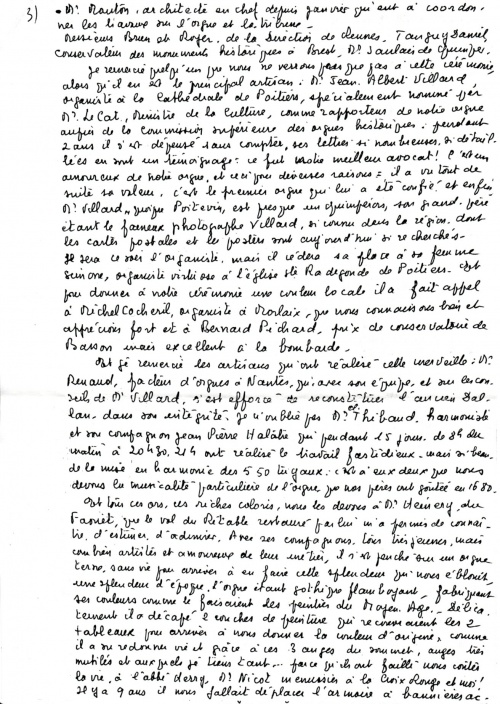 3)
• Mr. Mouton, architecte en chef depuis janvier qui eut à coordon-
ner les travaux sur l'orgue et la tribune.
Messieurs Brun et Roger, de la Direction de Rennes, Tanguy Daniel,
conservateur des monuments historiques à Brest, Mr. Jaulais de Quimper.
Je remercie quelqu'un que nous ne verrons presque pas à cette cérémonie,
alors qu'il en est le principal artisan : Mr. Jean Albert Villard
organiste à la Cathédrale de Poitiers, spécialement nommé par
Mr. Le Cat, Ministre de la Culture, comme rapporteur de notre orgue
auprès de la Commission supérieure des orgues historiques : pendant
2 ans il s'est dépensé sans compter, ses lettres si nombreuses, si détail-
lées en sont un témoignage : ce fut notre meilleur avocat ! C'est un
amoureux de notre orgue, et ceci pour diverses raisons = il a vu tout de
suite sa valeur, c'est le premier orgue qui lui a été confié et enfin
Mr. Villard, quoique Poitevin, est presque un quimpérois, son grand-père
étant le fameux photographe Villard, si connu dans la région, dont
les cartes postales et les posters sont aujourd'hui si recherchés.
Il sera ce soir l'organiste, mais il cédera sa place à sa femme
Simone, organiste virtuose à l'église Ste Radegonde de Poitiers. Et
pour donner à notre cérémonie une couleur locale il a fait appel
à Michel Cocheril, organiste à Morlaix, que nous connaissons bien et
apprécions fort et à Bernard Pichard, prix de conservatoire de
Basson mais excellent à la bombarde.
Et je remercie les artisans qui ont réalisé cette merveille : Mr
Renaud, facteur d'orgues à Nantes, qui avec son équipe, et sur les con-
seils de Mr Villard, s'est efforcé de reconstituer l'ancien Dal-
lam dans son intégrité. Je n'oublie pas Mr Thibaud, harmoniste
et son compagnon Jean Pierre Halatre qui pendant 15 jours, de 8h du
matin à 20h30, 21h ont réalisé le travail fastidieux mais si beau
de la mise en harmonie des 550 tuyaux : c'est à eux deux que nous
devons la musicalité particulière de l'orgue que nos pères ont goûtée en 1680.
Et tous ces ors, ces riches coloris, nous les devons à Mr Heinery, du
Faouët, que le vol du Retable restauré par lui m'a permis de connaî-
tre, d'estimer, d'admirer. Avec ses compagnons, tous très jeunes, mais
combien artistes et amoureux de leur métier, il s'est penché sur un orgue
terne, sans vie pour arriver à en faire cette splendeur qui nous éblouit,
une splendeur d'époque, l'orgue étant gothique flamboyant, fabriquant
ses couleurs comme le faisaient les peintres du Moyen Age. Délica-
tement il a décapé 2 couches de peinture qui recouvraient les 2
tableaux pour arriver à nous donner la couleur d'origine, comme
il a su redonner vie et grâce à ces 3 anges du sommet, anges très
mutilés et auxquels je tiens tant... parce qu'ils ont failli nous coûter
la vie, à l'abbé Derry, Mr Nicot menuisier à la Croix Rouge et moi !
Il y a 9 ans il nous fallait déplacer l'armoire à bannières ac-